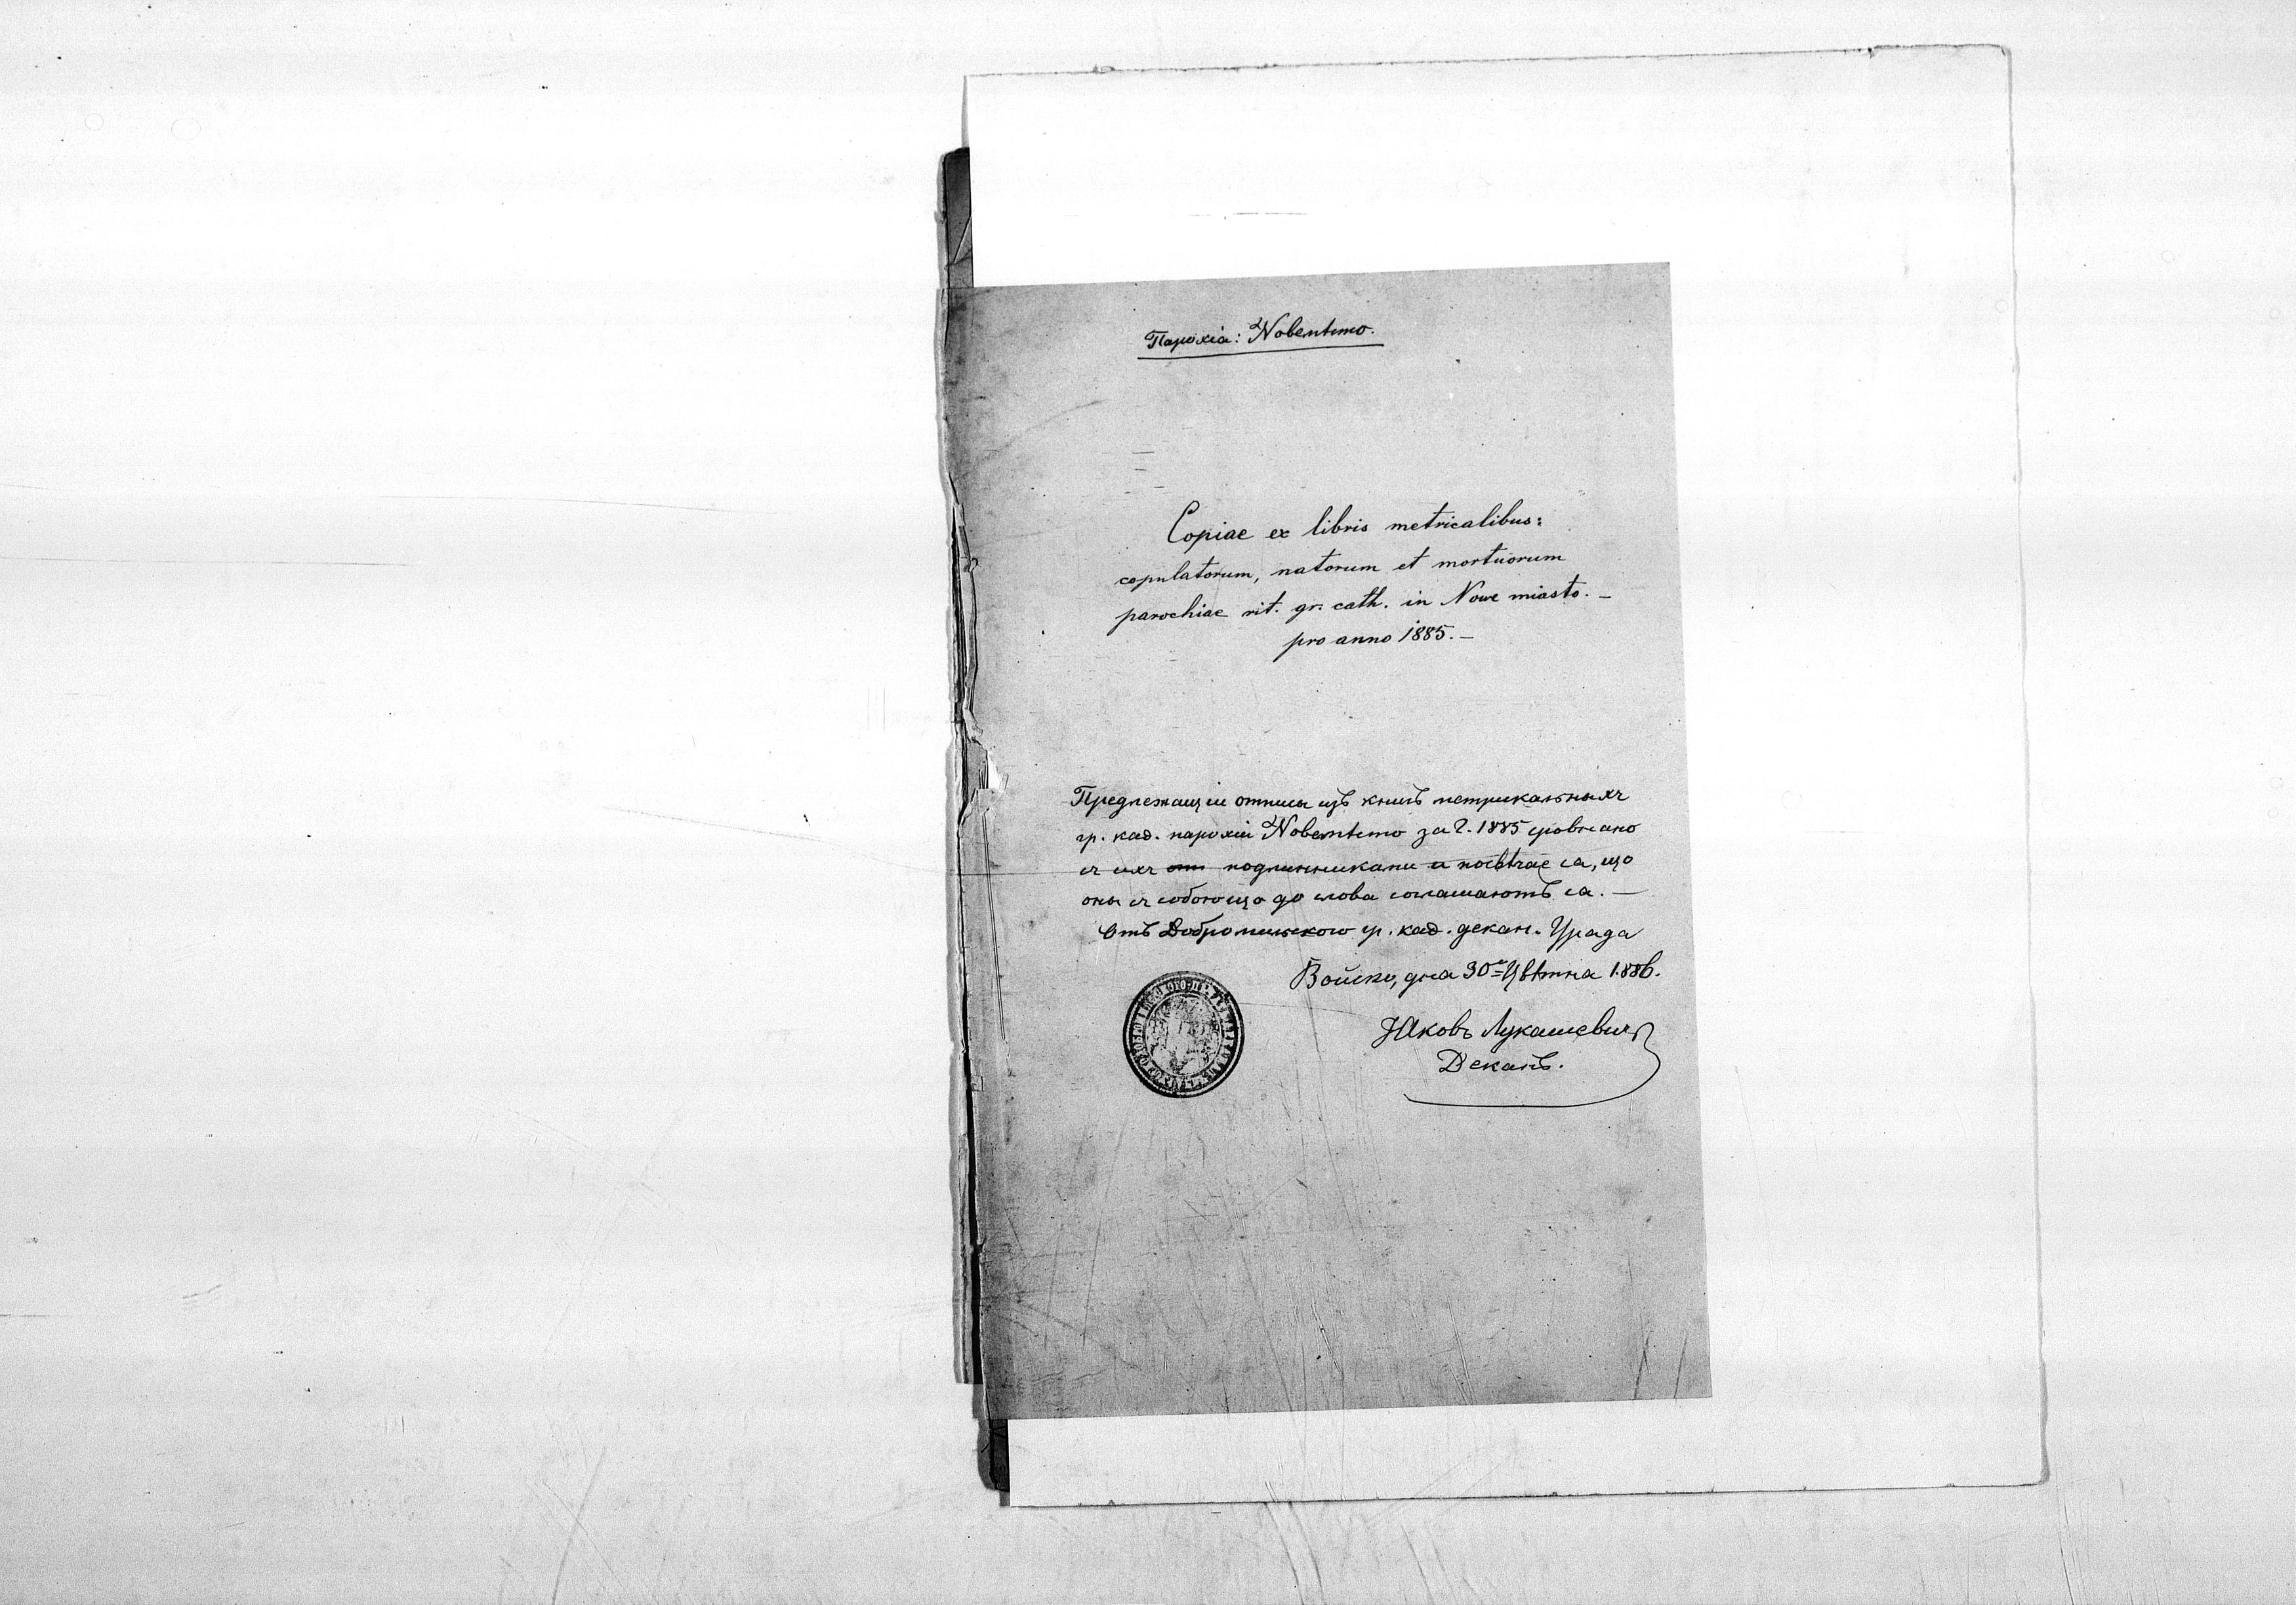 Парохіа: Новемѣсто.
Copiae ex libris metricalibus:
copulatorum, natorum et mortuorum
parochiae rit. gr. cath. in Nowe miasto. –
pro anno 1885. –
Предлежащіи отписы изъ книгъ метрикальныхъ
гр. кад. парохіи Новемѣсто за г. 1885 зровнано
съ ихъ подлинниками и посвѣдчае са, що
оны съ собою що до слова соглашаютъ са. –
Отъ Добромильского гр. кад. декан. Уряда
Войско, дня 30 Цвѣтня 1886.
Яковъ Лукашевич
Деканъ.